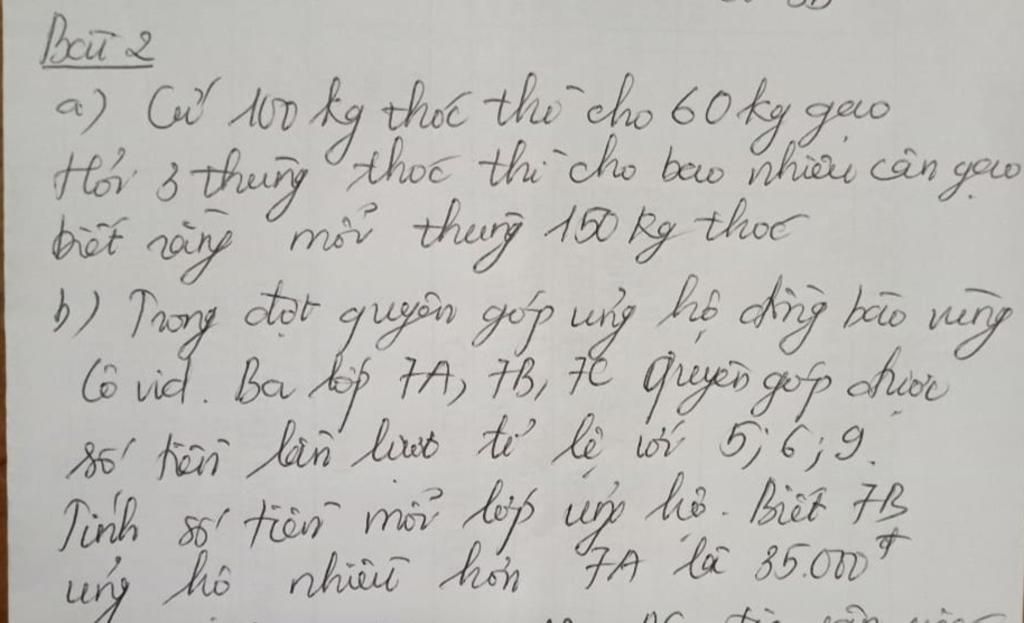 Bài 2
a) Cứ 100 kg thóc thì cho 60 kg gạo
Hỏi 3 thùng thóc thì cho bao nhiêu cân gạo
biết rằng mỗi thùng 150 kg thóc
b) Trong đợt quyên góp ủng hộ đồng bào vùng
Cô vid. Ba lớp 7A, 7B, 7C quyên góp được
số tiền lần lượt tỉ lệ với 5; 6; 9.
Tính số tiền mỗi lớp ủng hộ. Biết 7B
ủng hộ nhiều hơn 7A là 35.000đ